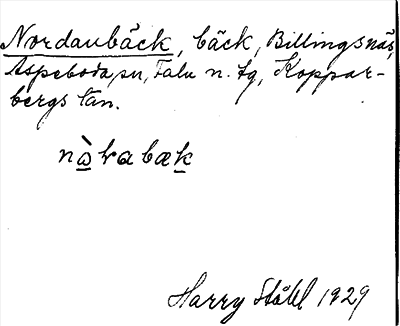 Nordanbäck, bäck, Billingsnäs,
Aspeboda sn, Falu n. tg, Koppar-
bergs län.
Harry Ståhl 1929